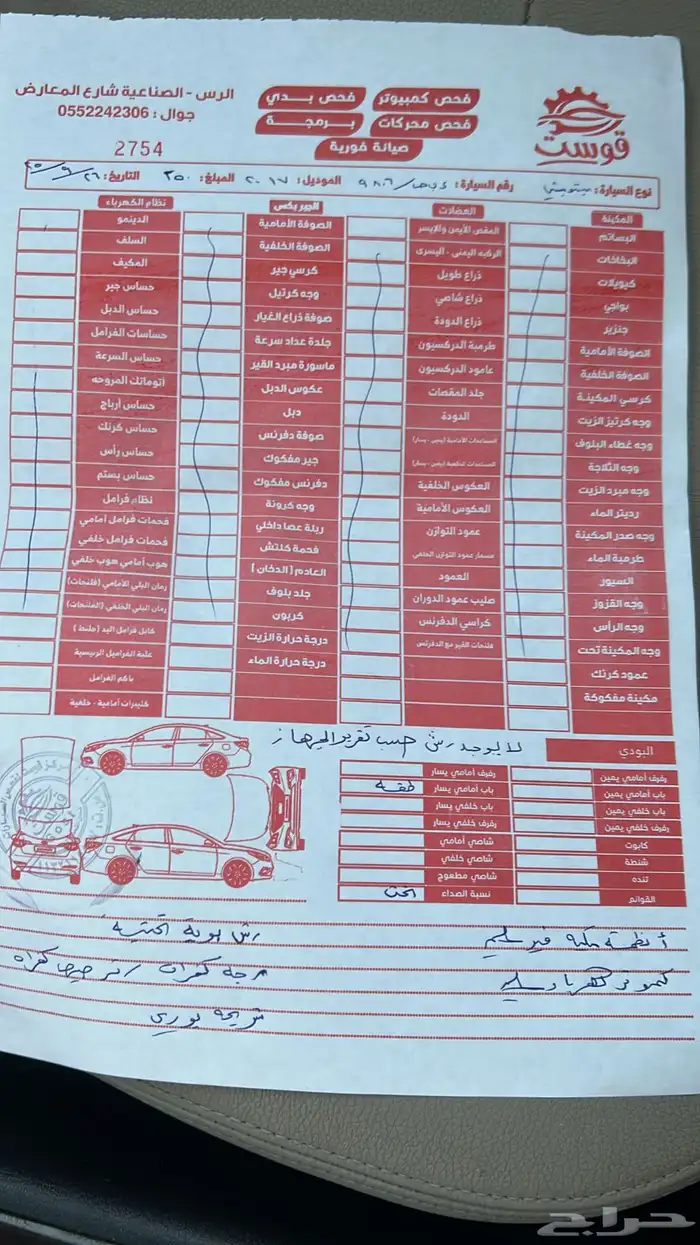 قوست
فحص كمبيوتر
فحص بدي
فحص محركات
برمجة
صيانة فورية
الرس - الصناعية شارع المعارض
جوال : 0552242306
2754
نوع السيارة: ميتسوبيشي رقم السيارة: ٩٨٠٦ الموديل: ٢٠١٧ المبلغ: ٢٥٠ التاريخ: ٢٦/٩/٢٥
المكينة
البساتم
البخاخات
كيويلات
بواجي
جنزير
الصوفة الأمامية
الصوفة الخلفية
كرسي المكينة
وجه كرتيز الزيت
وجه غطاء البلوف
وجه الثلاجة
وجه مبرد الزيت
رديتر الماء
وجه صدر المكينة
طرمبة الماء
السيور
وجه القزوز
وجه الراس
وجه المكينة تحت
عمود كرنك
مكينة مفكوكة
العضلات
المقص الأيمن والإيسر
الركبه اليمنى - اليسرى
ذراع طويل
ذراع شاصي
ذراع الدودة
طرمبة الدركسيون
عامود الدركسيون
جلد المقصات
الدودة
المساعدات الأمامية (يمين - يسار)
المساعدات الخلفية (يمين - يسار)
العكوس الخلفية
العكوس الأمامية
عمود التوازن
مسمار عمود التوازن الخلفي
العمود
صليب عمود الدوران
كراسي الدفرنس
فلنجات القير مع الدفرنس
الجير بكس
الصوفة الأمامية
الصوفة الخلفية
كرسي جير
وجه كرتيل
صوفة ذراع الغيار
جلدة عداد سرعة
ماسورة مبرد القير
عكوس الدبل
دبل
صوفة دفرنس
جير مفكوك
دفرنس مفكوك
وجه كرونة
ربلة عصا داخلي
فحمة كلتش
العادم (الدخان)
جلد بلوف
كربون
درجة حرارة الزيت
درجة حرارة الماء
نظام الكهرباء
الدينمو
السلف
المكيف
حساس جير
حساس الدبل
حساسات الفرامل
حساس السرعة
أتوماتك المروحه
حساس أرباج
حساس كرنك
حساس رأس
حساس بستم
نظام فرامل
فحمات فرامل أمامي
فحمات فرامل خلفي
هوب أمامي هوب خلفي
رمان البلي الأمامي (فلنجات)
رمان البلي الخلفي (الفلنجات)
كابل فرامل اليد (جلنط)
علبة الفراميل الرئيسية
باكم الفرامل
كليبرات أمامية - خلفية
البودي
لا يوجد رش حسب تقرير الجهاز
رفرف أمامي يمين
باب أمامي يمين
باب خلفي يمين
رفرف خلفي يمين
كابوت
شنطة
تنده
القوائم
رفرف أمامي يسار
باب أمامي يسار طقه
باب خلفي يسار
رفرف خلفي يسار
شاصي أمامي
شاصي خلفي
شاصي مطعوج
نسبة الصداء
أنظمة مكينه قير سليم
رش بوية
كمبيوتر كهرباء سليم
حراج